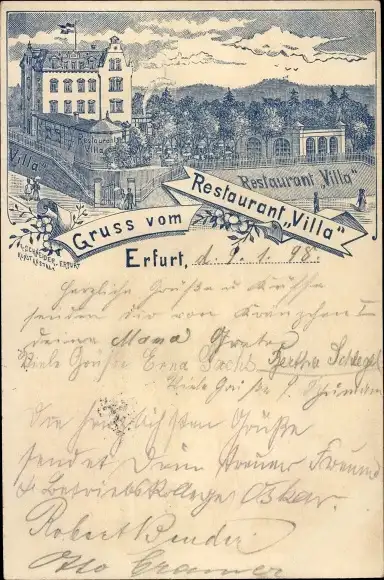 Restaurant
Villa
Villa
Restaurant „Villa"
Gruss vom Restaurant „Villa"
Erfurt, d. 9. 1. 98.
Herzliche Grüße u Küsse
senden dir vom Kränzchen
deine Mama Grete
Viele Grüße Erna Sachs Bertha Schlegel
Viele Grüße
Die herzlichsten Grüße
sendet Dein treuer Freund
Oskar.
Robert Bender.
Otto Cramer